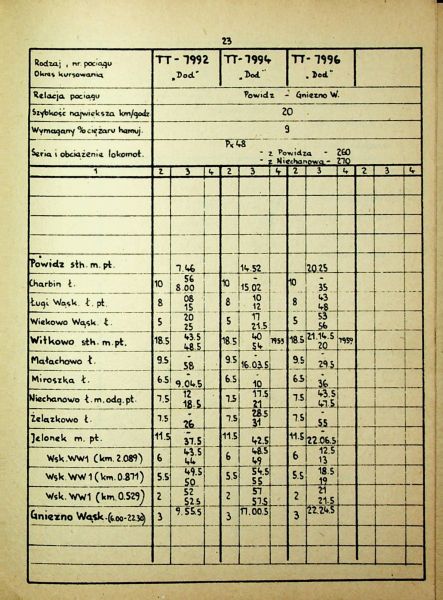 23
Rodzaj, nr. pociągu TT-7992 TT-7994 TT-7996
Okres kursowania „Dod" „Dod" „Dod"
Relacja pociągu Powidz - Gniezno W.
Szybkość największa km/godz 20
Wymagany % ciężaru hamuj. 9
Px48
Seria i obciążenie lokomot. - z Powidza - 260
- z Niechanowa - 270
1 2 3 4 2 3 4 2 3 4 2 3 4
Powidz sth. m. pt. 7.46 14.52 20.25
Charbin Ł. 10 56 10 - 10 -
8.00 15.02 35
Ługi Wąsk. Ł. pt. 8 08 8 10 8 43
15 12 48
Wiekowo Wąsk. Ł. 5 20 5 17 5 53
25 21.5 56
Witkowo sth. m. pt. 18.5 43.5 18.5 40 7953 18.5 21.14.5 7959
48.5 54 20
Małachowo Ł. 9.5 - 9.5 - 9.5 -
58 16.03.5 29.5
Miroszka Ł. 6.5 - 6.5 - 6.5 -
9.04.5 10 36
Niechanowo Ł. m. odg. pt. 7.5 12 7.5 17.5 7.5 43.5
18.5 21 47.5
Żelazkowo Ł. 7.5 - 7.5 28.5 7.5 -
26 31 55
Jelonek m. pt. 11.5 - 11.5 - 11.5 -
37.5 42.5 22.06.5
Wsk. WW1 (km. 2.089) 6 43.5 6 48.5 6 12.5
44 49 13
Wsk. WW1 (km. 0.871) 5.5 49.5 5.5 54.5 5.5 18.5
50 55 19
Wsk. WW1 (km. 0.529) 2 52 2 57 2 21
52.5 57.5 21.5
Gniezno Wąsk. (6.00-22.30) 3 9.55.5 3 17.00.5 3 22.24.5